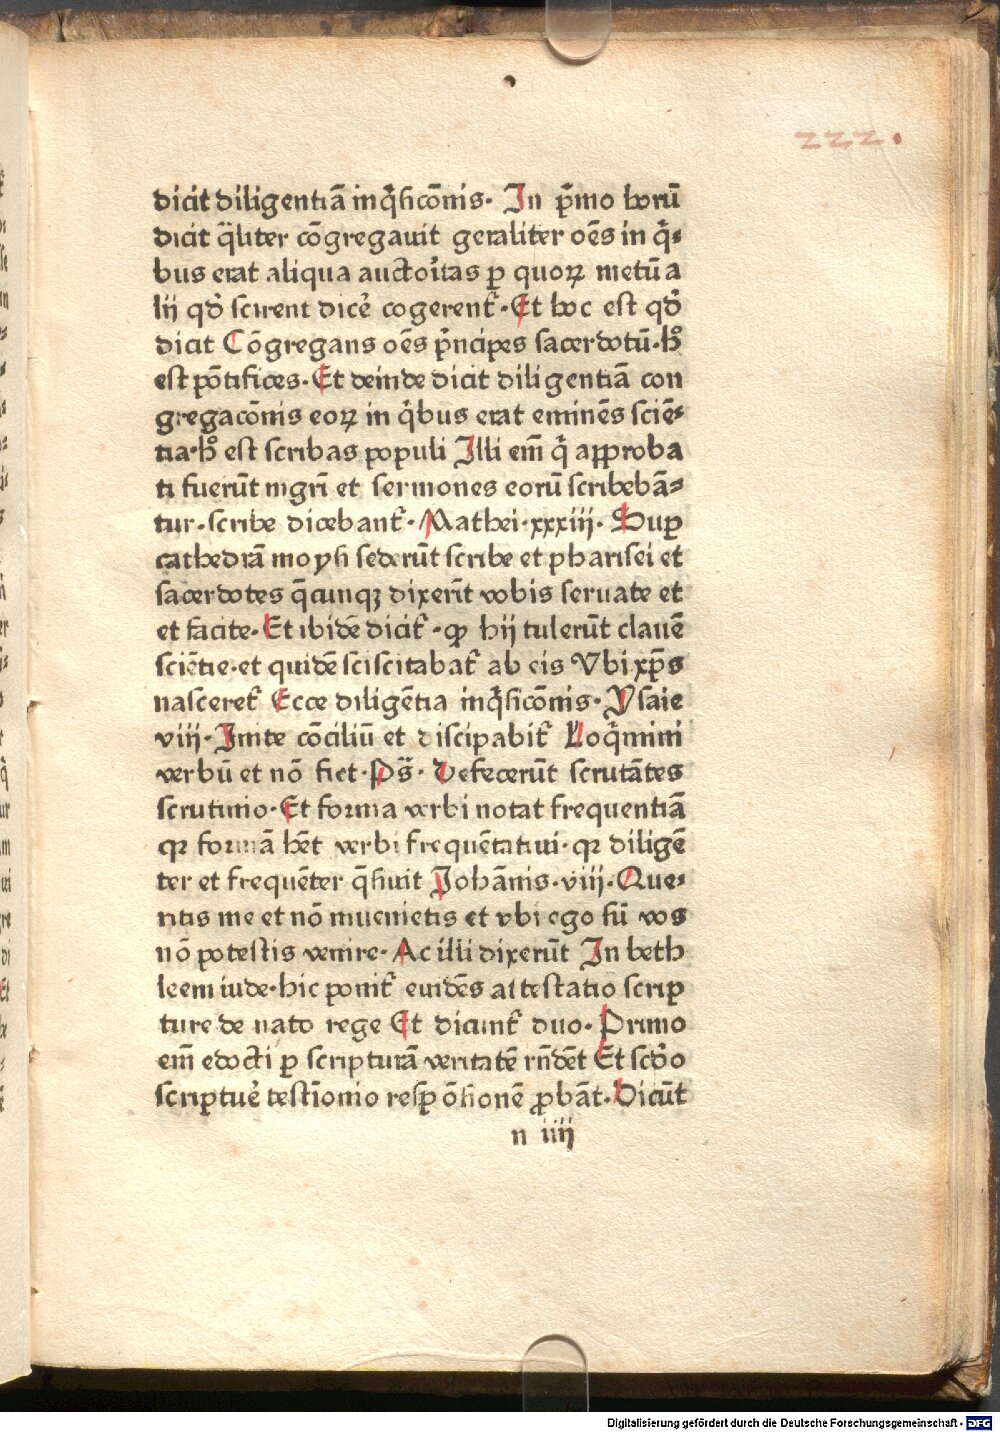 222.
dicit diligentiā inq̄sicōnis. In p̄mo horū
dicit q̄liter cōgregauit gerāliter oēs in q̄-
bus erat aliqua auctoritas ꝑ quoꝝ metū a
lii qd̄ scirent dicē cogerent̄. Et hoc est qd̄
dicit Cōgregans oēs p̄ncipes sacerdotū. h̄
est pōtifices. Et deinde dicit diligentiā con
gregacōnis eoꝝ in q̄bus erat eminēs sciē-
tia. h̄ est scribas populi Illi em̄ q̄ approba
ti fuerūt mgr̄i et sermones eorū scribebā-
tur. scribe dicebant̄. Mathei. xxxiii. Suꝑ
cathedrā moysi sederūt scribe et pharisei et
sacerdotes q̄cunqꝫ dixerīt vobis seruate et
et facite. Et ibidē dicit̄. ꝙ hij tulerūt clauē
sciētie. et quidē sciscitabat̄ ab eis Vbi xp̄s
nasceret̄ Ecce diligētia inq̄sicōnis. Ysaie
viii. Inite cōciliū et discipabit̄ Loq̄mini
verbū et nō fiet. Ps̄. Defecerūt scrutātes
scrutinio. Et forma verbi notat frequentiā
qꝛ formā hēt verbi frequētatiui. qꝛ diligē
ter et frequēter q̄siuit Johānis. viii. Que-
ritis me et nō inuenietis et vbi ego sū vos
nō potestis venire. Ac illi dixerūt In beth
leem iude. hic ponit̄ euidēs attestatio scrip
ture de nato rege Et dicunt̄ duo. Primo
em̄ edocti ꝑ scripturā veritatē rn̄dēt Et scd̄o
scriptuē testīonio resp̄ōsionē ꝓbāt. Dicūt
n iiij
Digitalisierung gefördert durch die Deutsche Forschungsgemeinschaft - DFG